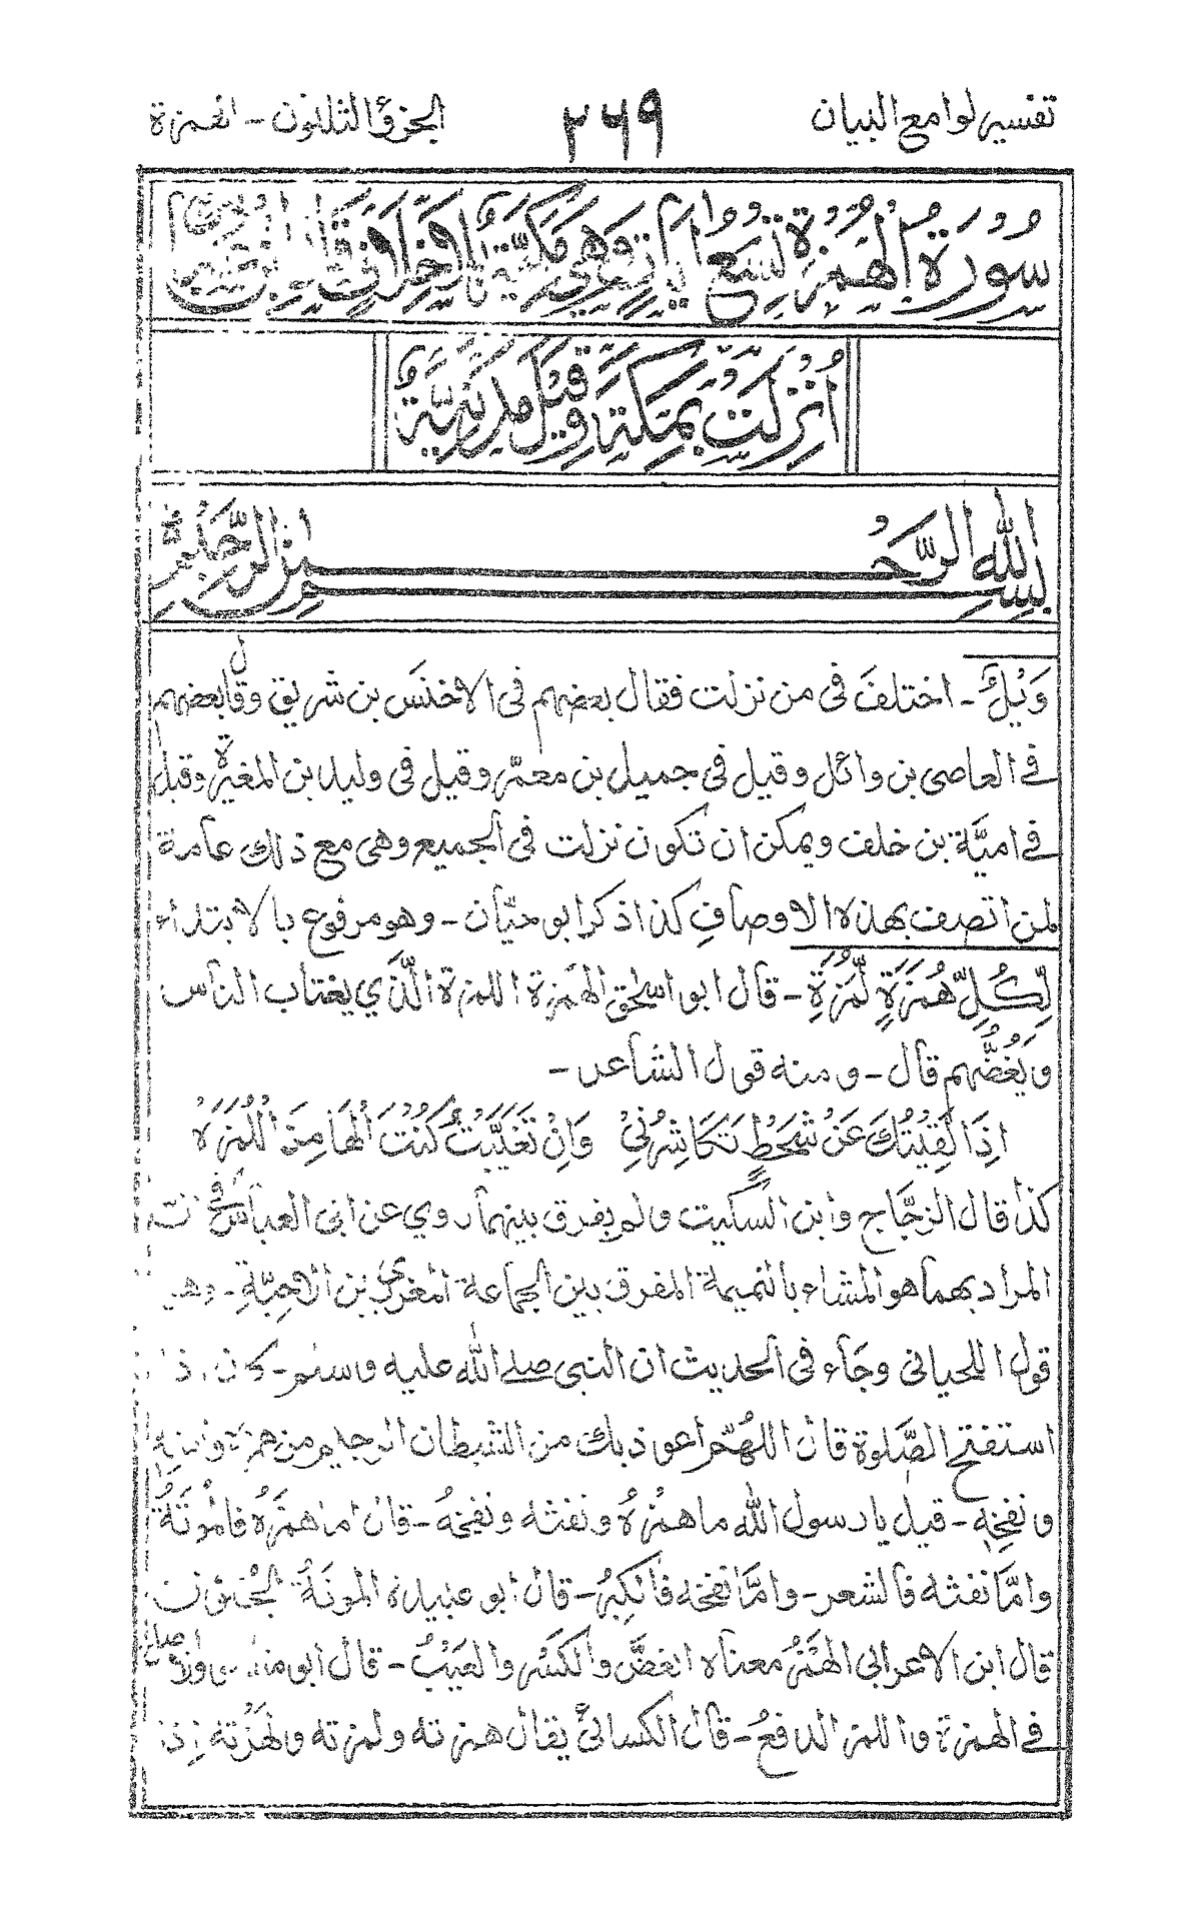 تفسير لوامع البيان
٢٦٩
الجزؤ الثلثون - الهمزة
سُورَةُ الْهُمَزَةِ تِسْعُ اٰيَاتٍ وَهِيَ مَكِّيَّةٌ بِلَا خِلَافٍ
اُنْزِلَتْ بِمَكَّةَ وَقِيْلَ مَدَنِيَّةٌ
بِسْمِ اللهِ الرَّحْمٰنِ الرَّحِيْمِ
وَيْلٌ - اختلفَ في من نزلت فقال بعضهم في الاخنَس بن شريق وقال بعضهم
في العاصى بن وائل وقيل في جميل بن معمّر وقيل في وليد بن المغيرة وقيل
في اميَّة بن خلف ويمكن ان تكون نزلت في الجميع وهى مع ذلك عامة
لمن اتصف بهذه الاوصافِ كذا ذكر ابو حيّان - وهو مرفوع بالابتداء
لِّكُلِّ هُمَزَةٍ لُّمَزَةٍ - قال ابو اسحٰق الهمزة اللمزة الَّذي يغتاب الناس
ويَغُضُّهم قال - ومنه قول الشاعر -
اِذَا لَقِيْتُكَ عَنْ شَحَطٍ تُكَاشِرُنِيْ وَاِنْ تَغَيَّبْتُ كُنْتَ الْهَامِزَ اللُّمَزَهْ
كذا قال الزجَّاج وابن السكيت ولم يفرق بينهما روي عن ابى العباس في
المراد بهما هو المشاء بالنميمة المفرق بين الجماعة المغري بين الاحِبَّةِ - وهي
قول اللحيانى وجَاء في الحديث ان النبي صلے الله عليه وسلم - كان اذا
استفتح الصَّلوة قال اللهُمّ اعوذ بك من الشيطان الرجيم من همزه ونفثه
ونفخِهٖ - قيل يا رسول الله ما همْزُهُ ونفثه ونفخهُ - قال اما همْزُهُ فالمُوْتَةُ
وامَّا نفثه فالشعر - وامَّا نفخه فالكِبرُ - قال ابو عبيدة المونَةُ الجنون
قال ابن الاعرابي الهَمْزُ معناه الغضّ والكسْر والعَيْبُ - قال ابو
في الهمزة واللمز الدفعُ - قال الكسائىُّ يقال همزته ولمزته ولهزْته اذا